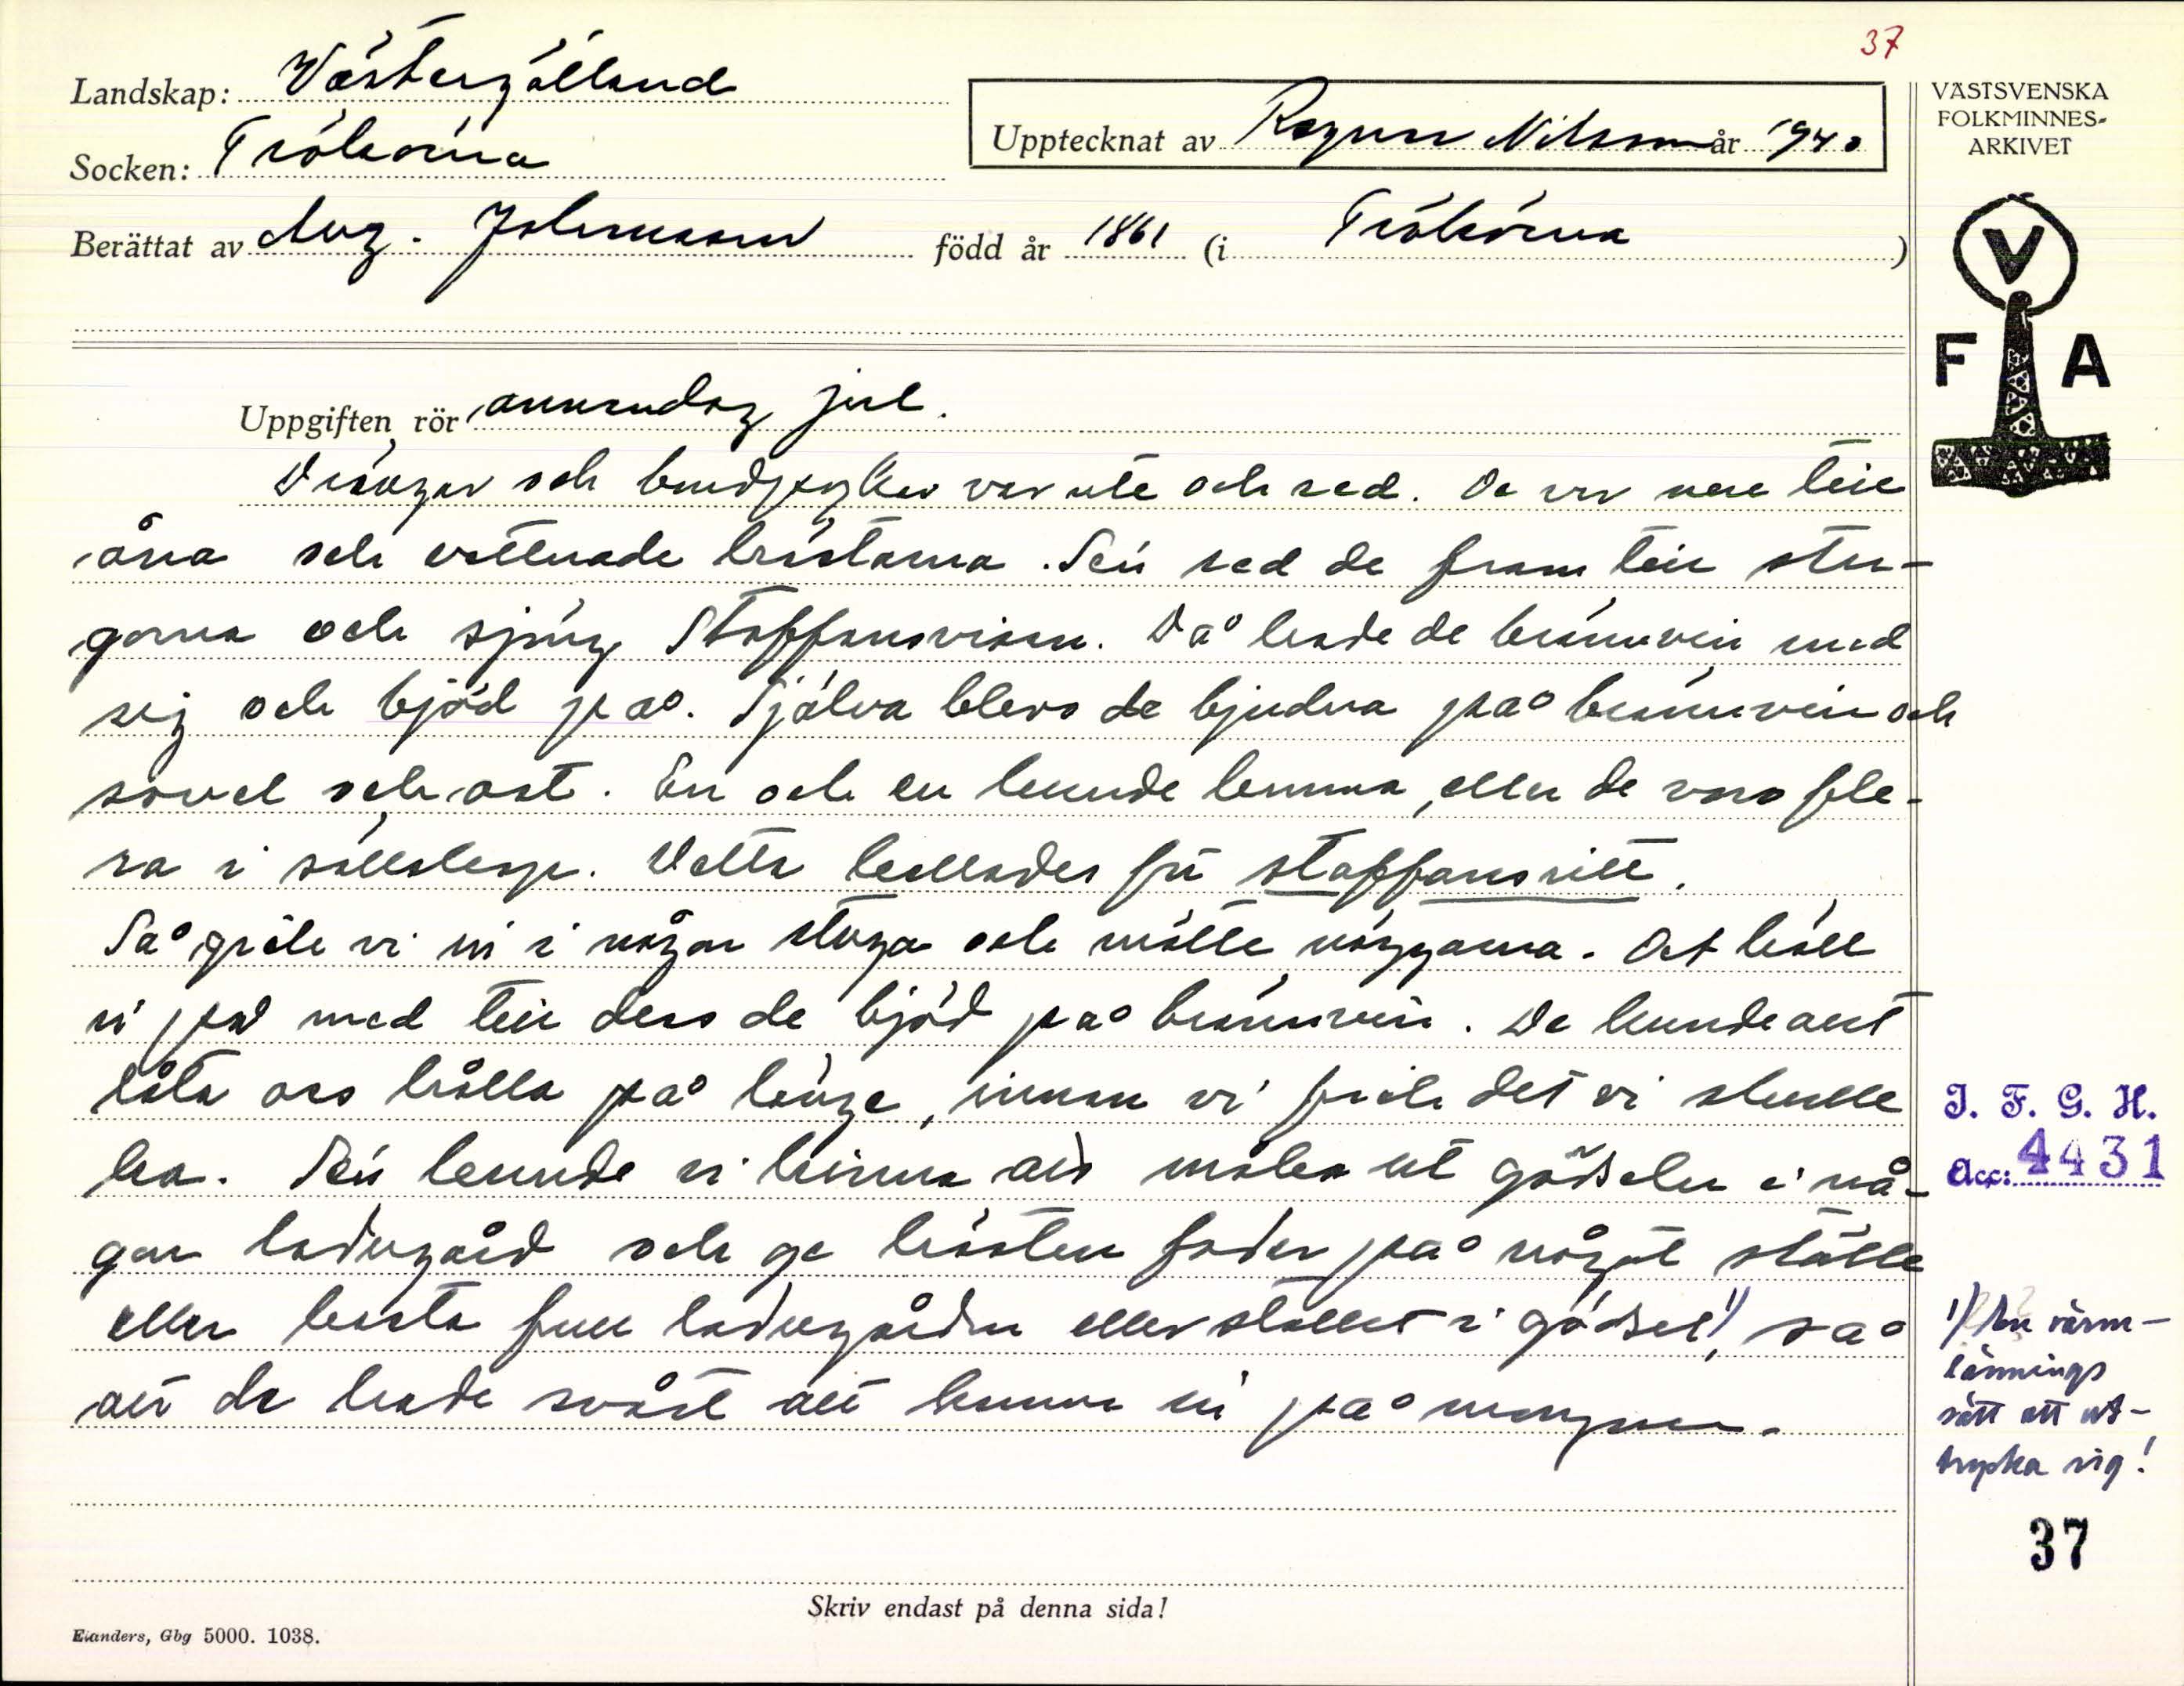 37
Landskap: Västergötland
Socken: Trökörna
Upptecknat av Ragnar Nilsson år 1940
Berättat av Aug. Johansson född år 1861 (i Trökörna)
VÄSTSVENSKA
FOLKMINNES-
ARKIVET
V
F A
Uppgiften rör annandag jul.
Drängar och bondpojkar var ute och red. De var nere te
åna och vattnade hästarna. Sen red de fram till stu-
gorna och sjöng Staffansvisan. Då hade de brännvin med
sig och bjöd på. Själva blevo de bjudna på brännvin och
sovel och ost. En och en kunde komma, eller de voro fle-
ra i sällskap. Detta kallades för staffansritt.
Så gick vi in i någon stuga och mätte väggarna. Det höll
vi på med till dess de bjöd på brännvin. De kunde allt
låta oss hålla på länge, innan vi fick det vi skulle
ha. Sen kunde vi hinna att måka ut gödseln i nå-
gon ladugård och ge hästen foder på något ställe
eller kasta full ladugården eller stallet i gödsel 1), så
att de hade svårt att komma in på morgonen.
J. F. G. H.
Acc: 4431
1) En värm-
lännings
sätt att ut-
trycka sig!
37
Skriv endast på denna sida!
Elanders, Gbg 5000. 1038.